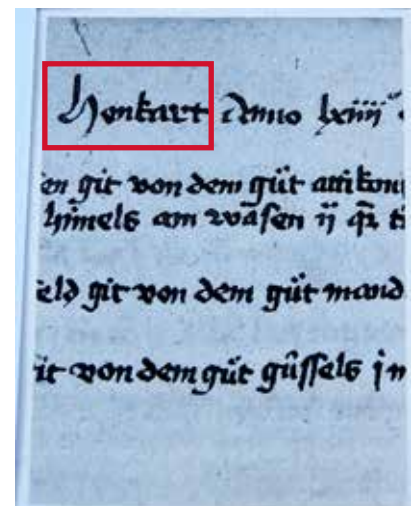 Honkart Anno lxiiii
en git von dem güt attikon
himels am wasen ij
eld git von dem güt mand
it von dem güt güssels in